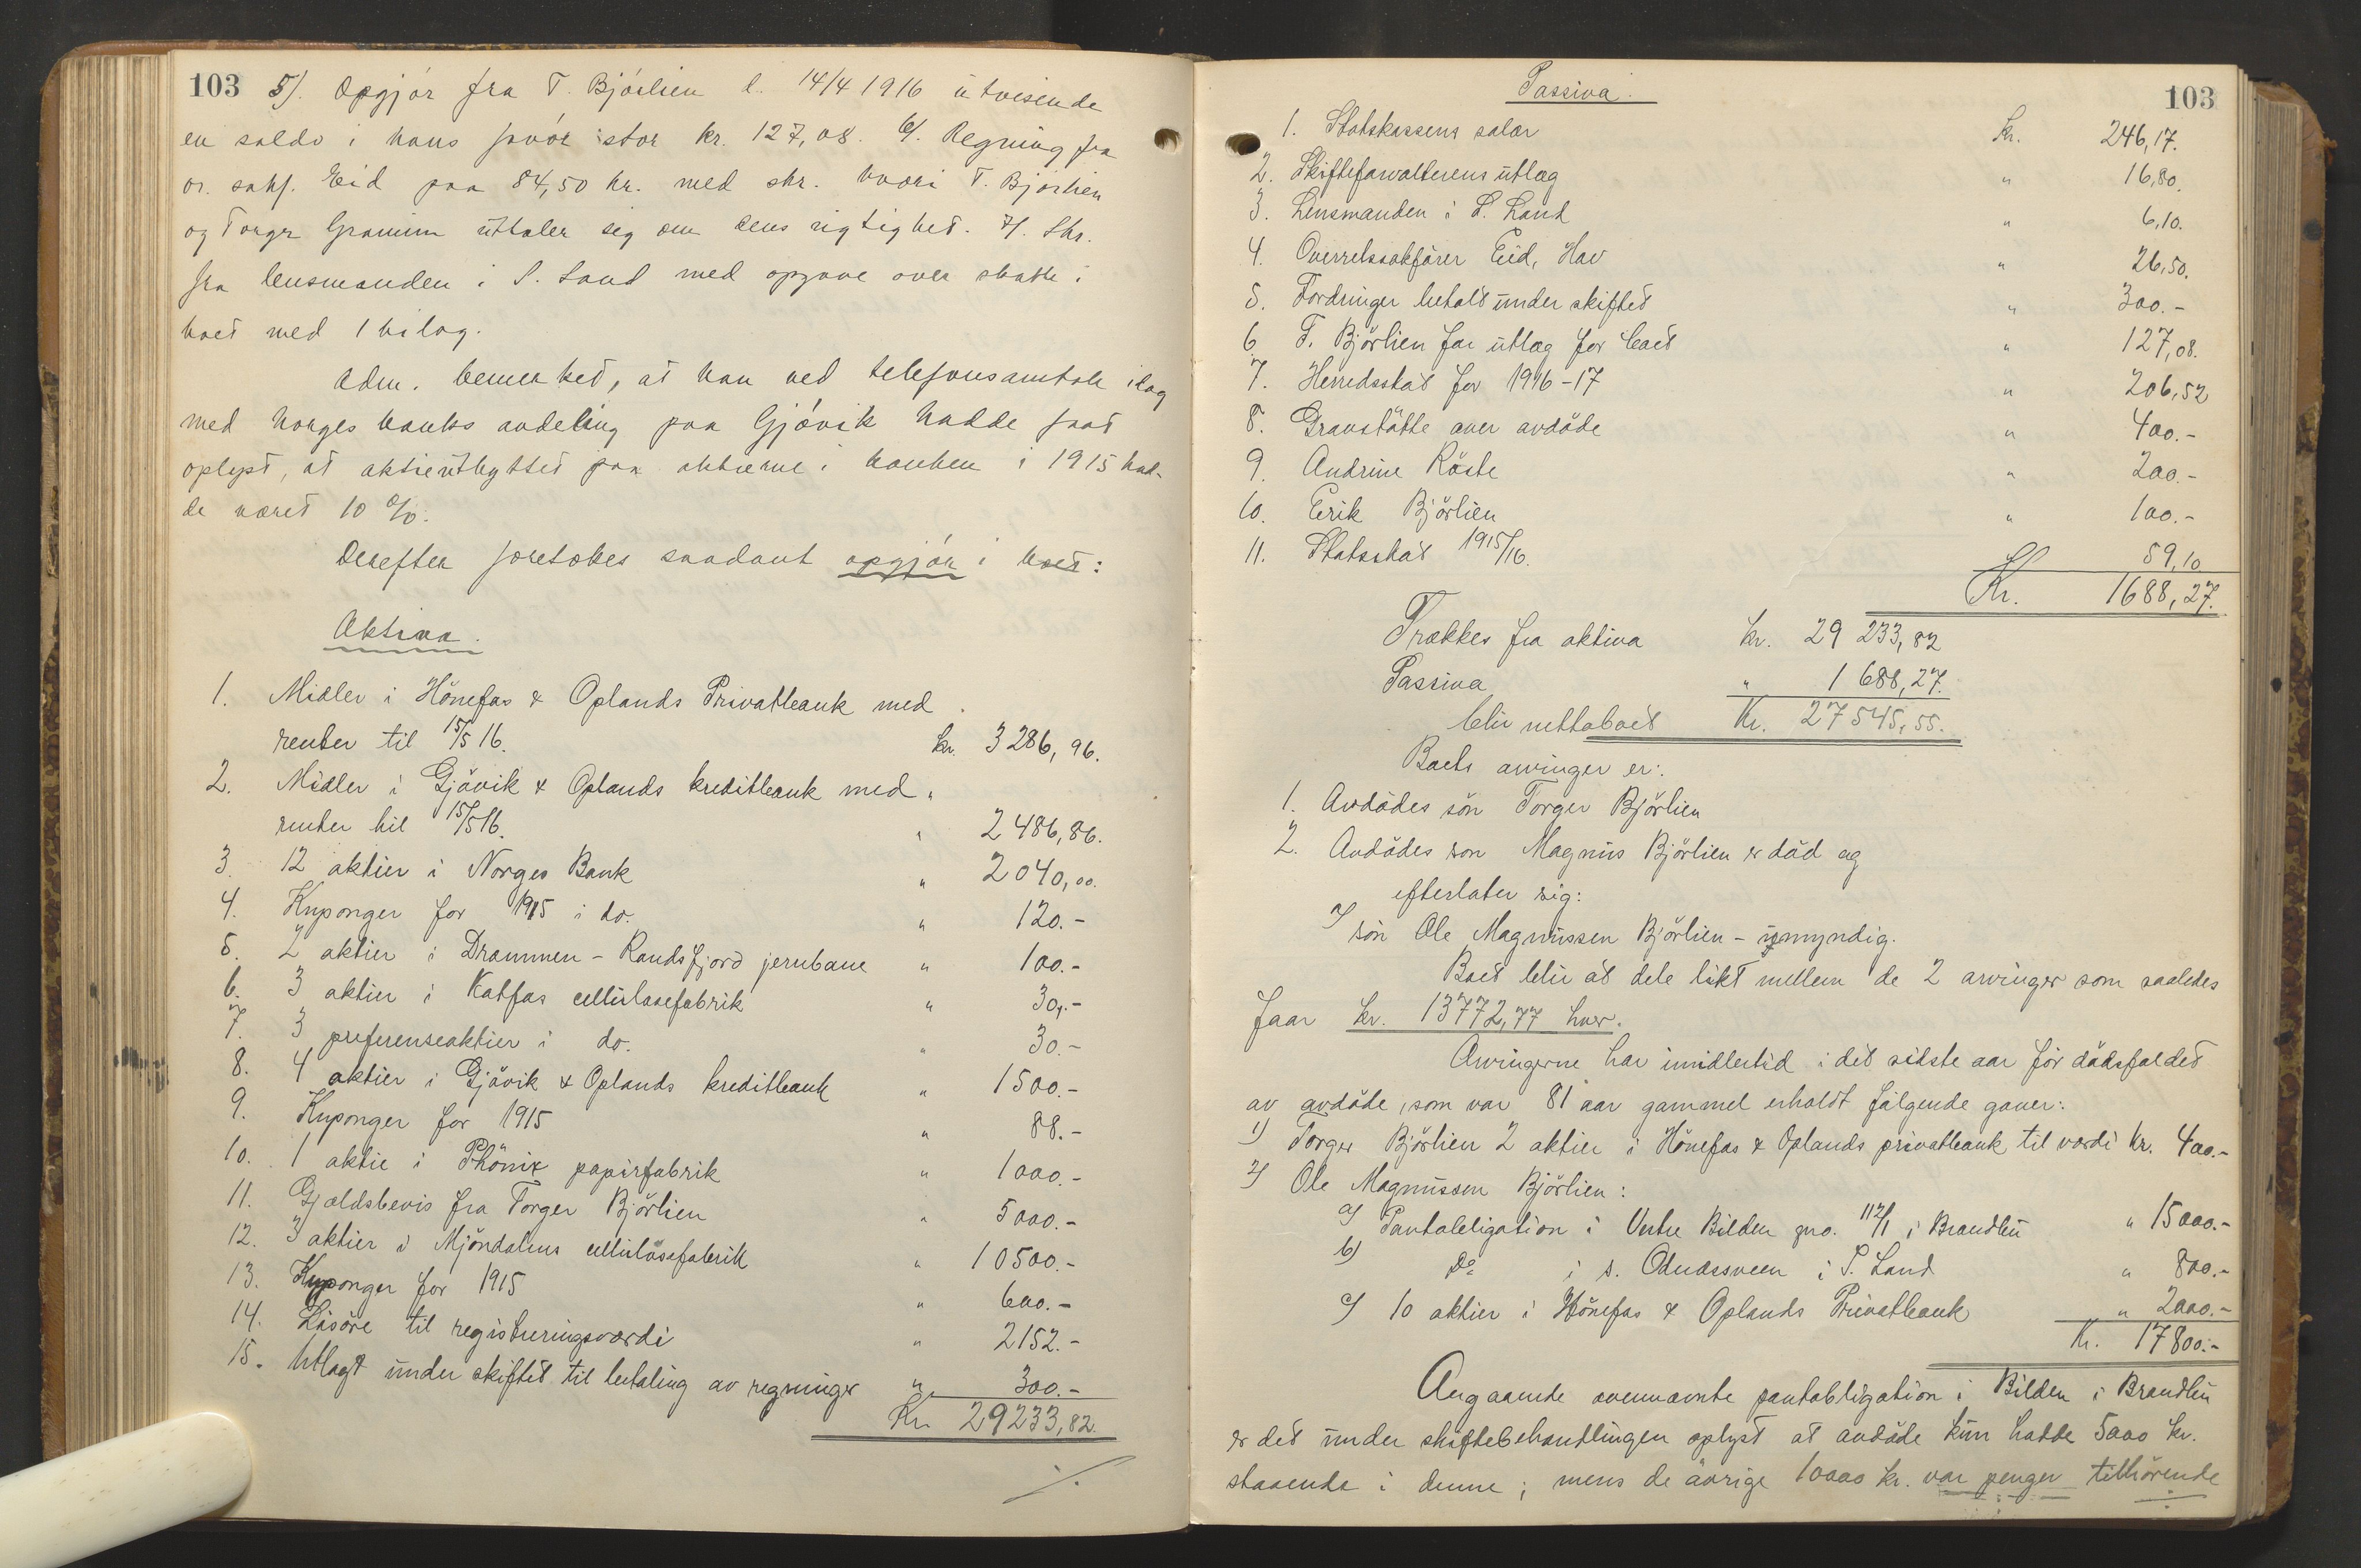 103 5/. Opgjör fra T. Björlien d. 14/4 1916 utvisende
en saldo i hans favör stor kr. 127,08. 6/. Regning fra
or. sakf. Eid paa 84,50 kr. med skr. hvori T. Björlien
og Torger Granum uttaler sig om dens rigtighet. 7/. Skr.
fra lensmanden i S. Land med opgave over skatte i
boet med 1 bilag.
Adm. bemerket, at han ved telefonsamtale idag
med Norges banks avdeling paa Gjövik hadde faat
oplyst, at aktieutbyttet paa aktierne i banken i 1915 had-
de været 10 %.
Derefter foretokes saadant opgjör i boet:
Aktiva.
1. Midler i Hönefos & Oplands Privatbank med
renter til 15/5 16. kr. 3286,96.
2. Midler i Gjövik & Oplands kreditbank med
renter til 15/5 16. " 2486,86.
3. 12 aktier i Norges Bank " 2040,00.
4. Kuponger for 1915 i do. " 120.-
5. 2 aktier i Drammen - Randsfjord jernbane " 100.-
6. 3 aktier i Katfos cellulosefabrik " 30.-
7. 3 preferenseaktier i do. " 30.-
8. 4 aktier i Gjövik & Oplands kreditbank " 1500.-
9. Kuponger for 1915 " 88.-
10. 1 aktie i Phönix papirfabrik " 1000.-
11. Gjældsbevis fra Torger Björlien " 5000.-
12. 3 aktier i Mjöndalens cellulosefabrik " 10500.-
13. Kuponger for 1915 " 600.-
14. Lösöre til registreringsværdi " 2152.-
15. Utlagt under skiftet til betaling av regninger " 300.-
Kr. 29233,82.
./.
103
Passiva.
1. Statskassens salær kr. 246,17.
2. Skifteforvalterens utlæg " 16,80.
3. Lensmanden i S. Land " 6,10.
4. Overretssakförer Eid, Hov " 26,50.
5. Fordringer betalt under skiftet " 300.-
6. T. Björlien for utlæg for boet " 127,08.
7. Herredsskat for 1916-17 " 206,52
8. Gravstötte over avdöde " 400.-
9. Andrine Röste " 200.-
10. Eirik Björlien " 100.-
11. Statsskat 1915/16. " 59,10
Kr. 1688,27.
Trækkes fra aktiva kr. 29 233,82
Passiva " 1 688,27.
blir nettoboet Kr. 27 545,55.
Boets arvinger er:
1. Avdödes sön Torger Björlien
2. Avdödes sön Magnus Björlien er död og
efterlater sig:
a/ sön Ole Magnussen Björlien - umyndig.
Boet blir at dele likt mellem de 2 arvinger som saaledes
faar kr. 13772,77 hver.
Arvingerne har imidlertid i det sidste aar för dödsfaldet
av avdöde, som var 81 aar gammel erholdt fölgende gaver:
1) Torger Björlien 2 aktier i Hönefos & Oplands privatbank til værdi kr. 400.-
2) Ole Magnussen Björlien:
a) Pantobligation i Vestre Bilden gno. 112/1 i Brandbu " 15000.-
b) Do i s. Odnæssveen i S. Land " 800.-
c) 10 aktier i Hönefos & Oplands Privatbank " 2000.-
Kr. 17800.-
Angaaende ovennævnte pantobligation i Bilden i Brandbu
er det under skiftebehandlingen oplyst at avdöde kun hadde 5000 kr.
staaende i denne; mens de övrige 10000 kr. var penger tilhörende